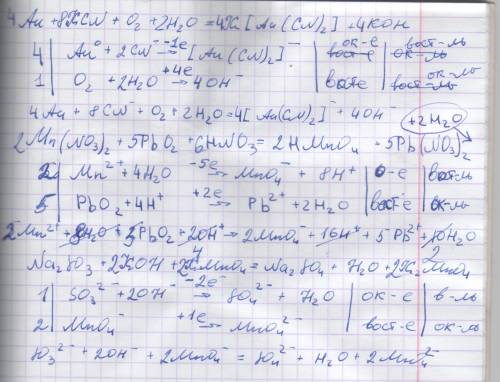 4Au + 8KCN + O₂ + 2H₂O = 4K[Au(CN)₂] + 4KOH
4 | Au⁰ + 2CN⁻ -1e→ [Au(CN)₂]⁻ | ок-е | вост-ль
1 | O₂ + 2H₂O +4e→ 4OH⁻ | вост-е | ок-ль
4Au + 8CN⁻ + O₂ + 2H₂O = 4[Au(CN)₂]⁻ + 4OH⁻
2Mn(NO₃)₂ + 5PbO₂ + 6HNO₃ = 2HMnO₄ + 5Pb(NO₃)₂ +2H₂O
2 | Mn²⁺ + 4H₂O -5e→ MnO₄⁻ + 8H⁺ | о-е | вост-ль
5 | PbO₂ + 4H⁺ +2e→ Pb²⁺ + 2H₂O | вост-е | ок-ль
2Mn²⁺ + 8H₂O + 5PbO₂ + 20H⁺ → 2MnO₄⁻ + 16H⁺ + 5Pb²⁺ + 10H₂O
4 2
Na₂SO₃ + 2KOH + 2KMnO₄ = Na₂SO₄ + H₂O + 2K₂MnO₄
1 | SO₃²⁻ + 2OH⁻ -2e→ SO₄²⁻ + H₂O | ок-е | в-ль
2 | MnO₄⁻ +1e→ MnO₄²⁻ | вост-е | ок-ль
SO₃²⁻ + 2OH⁻ + 2MnO₄⁻ = SO₄²⁻ + H₂O + 2MnO₄²⁻